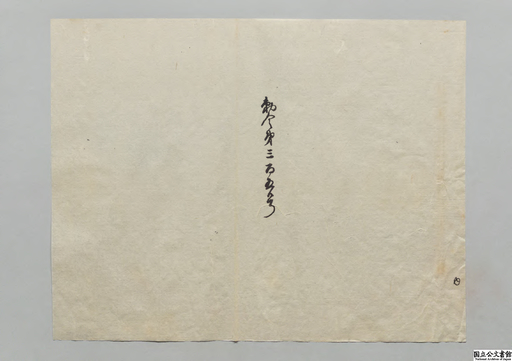 勅令第三百五号
国立公文書館
National Archives of Japan